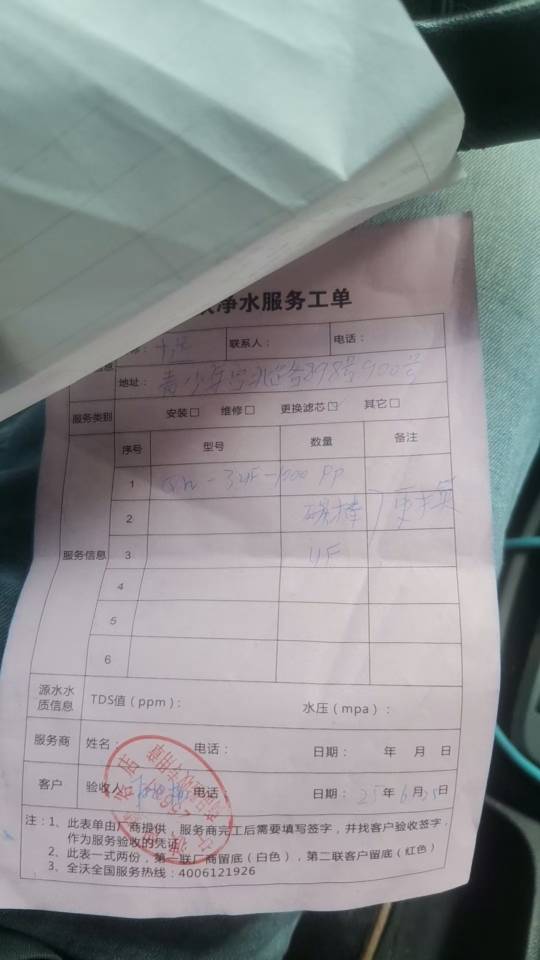 净水服务工单
联系人： 电话：
地址： 青少年宫北路398号900号
服务类别 安装□ 维修□ 更换滤芯☑ 其它□
序号 型号 数量 备注
1 PP
2 碳棒 更换
服务信息 3 UF
4
5
6
源水水质信息 TDS值（ppm）： 水压（mpa）：
服务商 姓名： 电话： 日期： 年 月 日
客户 验收人 电话 日期： 25年6月25日
注：1、此表单由厂商提供，服务商完工后需要填写签字，并找客户验收签字，
作为服务验收的凭证
2、此表一式两份，第一联厂商留底（白色），第二联客户留底（红色）
3、全沃全国服务热线：4006121926